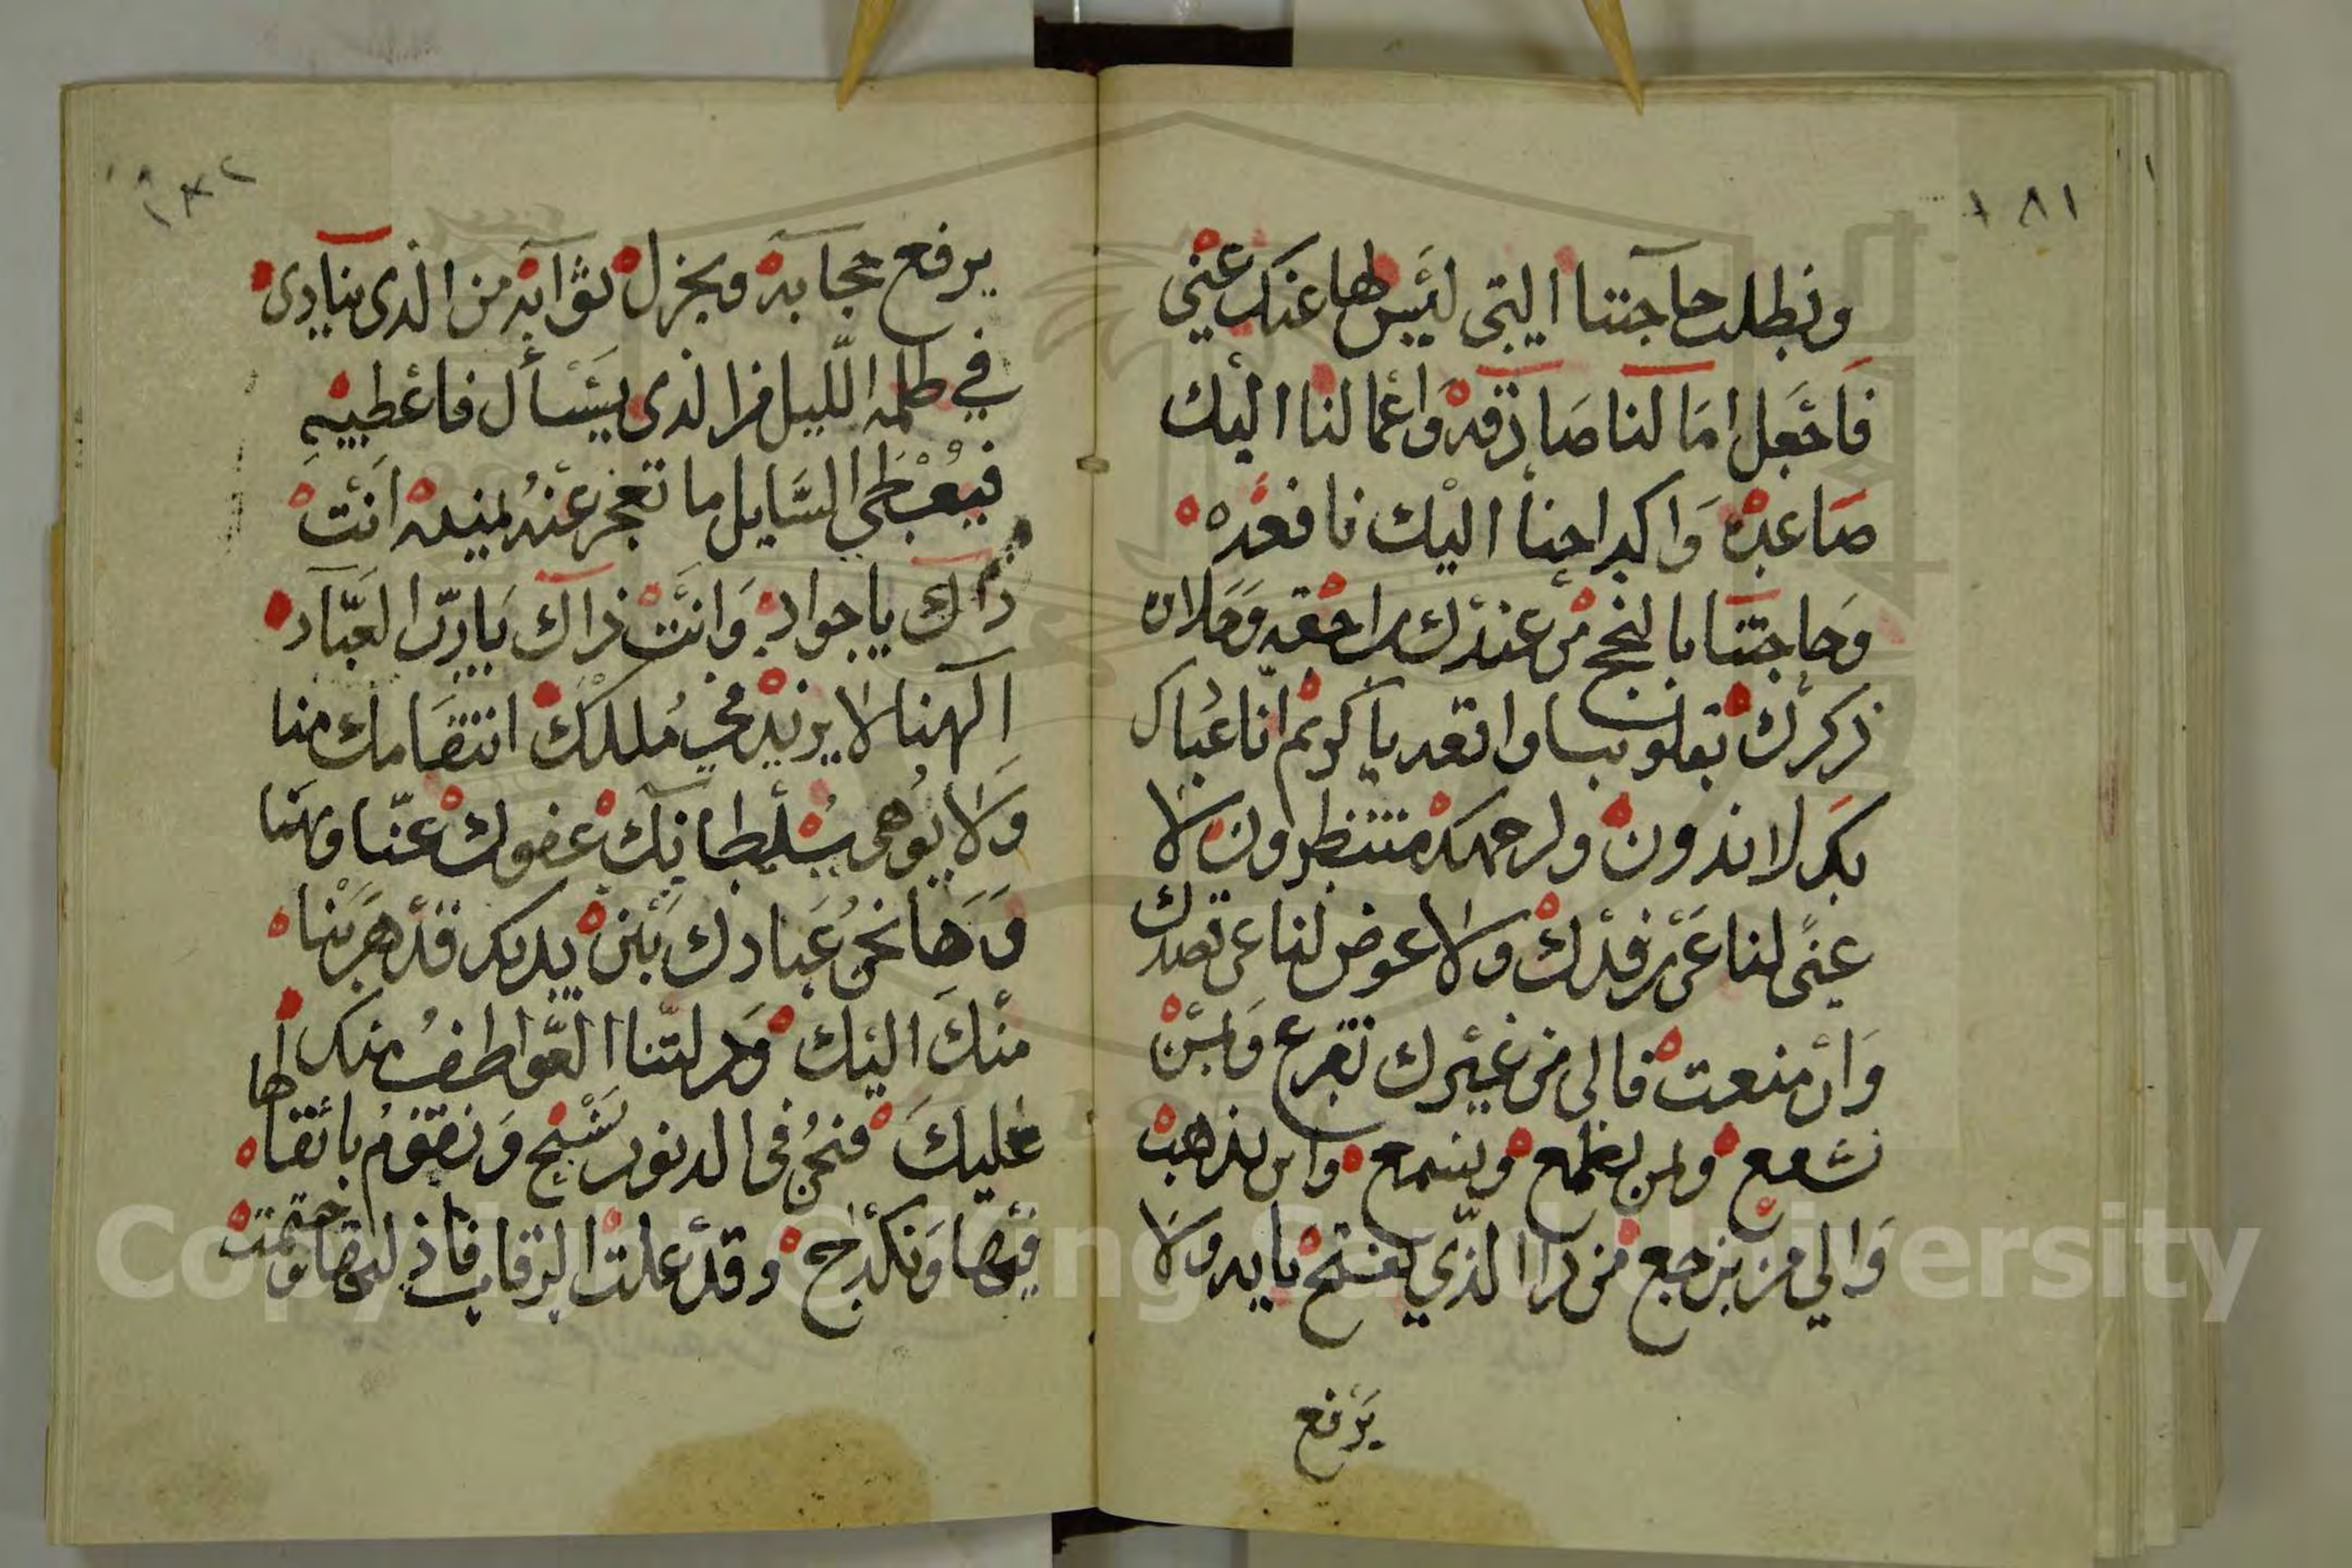 ١٨١
ونطلب حاجتنا التي ليس لها عنك غني
فَاجْعَل امَالنا صَادقه وَاعْمالنا اليك
صَاعده وَاكبد احنا اليْك نافعه
وَحاجتنا بالنجح مْن عندْك راحقه وَملان
ذكرك بقلوبنا وانعد يا كريم انّا عبا ك
بكَ لاندون ولرحمتك منتظرون لا
غنًى لنا عَن رفدْك ولا عوض لنا عن قصدك
وَان منعت فالى من غيْرك نقرع وَلمن
نشفع ولمن نطمع ونسمع واين نذهب
وَالي من نرجع من ذا الذّي يفتح بابه ولا
يَرْفع
١٨٢
يرفع حجابه ويجزل ثوابه من الذى ينادى
في ظلمه الليل من الذى يسْأل فاعْطيهِ
فيُعْطي السَّايل ما تعجز عنْهُ لمنيته انْت
ذاك ياجواد وَانْت ذاك يَاربّ العبّاد
الهنا لا يزيْد في مُللكْ انتقَامك منا
وَلا يُوهى سُلْطانك عفوك عنّا وهَنا
وَهَا نحنُ عَبادك بَيْن يديك قدْ هرَبْنا
منْكَ اليْك وَدلتنا العَواطفُ منك لها
عليكَ فنحنُ فى الدنور نسْبح وَنقوُم باثقاه
فيْها وَنكدْح وقدْ علت الرقاب فاذ لتها وختمت